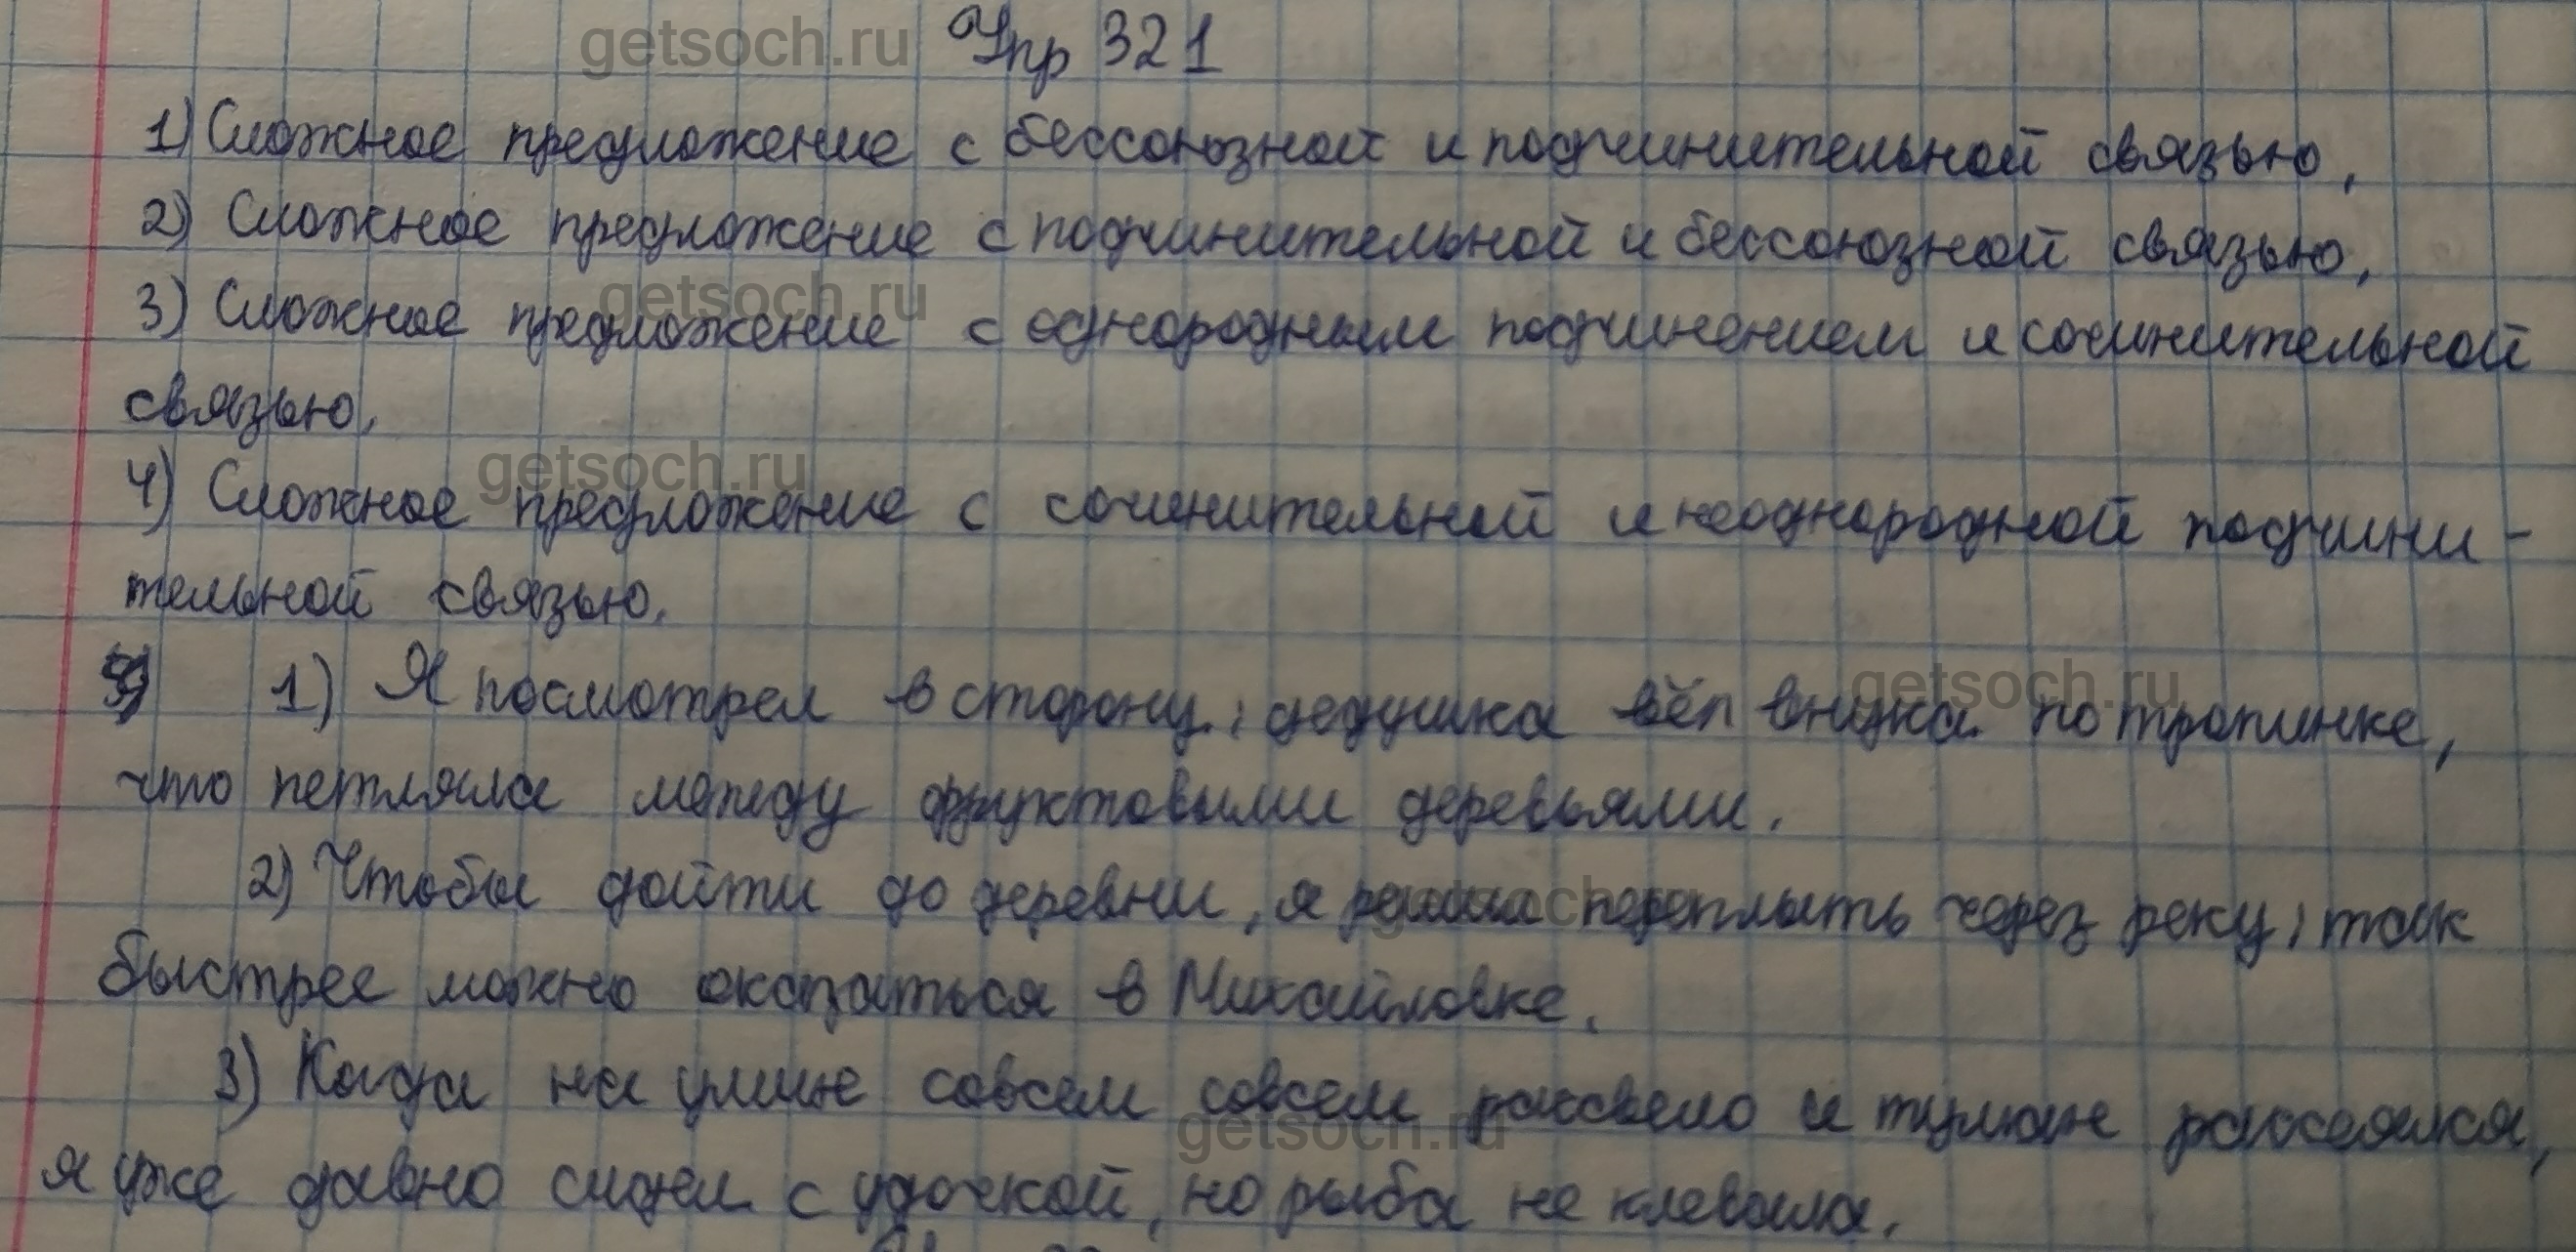 Упр 321
1) Сложное предложение с бессоюзной и подчинительной связью,
2) Сложное предложение с подчинительной и бессоюзной связью,
3) Сложное предложение с однородным подчинением и сочинительной
связью,
4) Сложное предложение с сочинительной и неоднородной подчини-
тельной связью.
1) Я посмотрел в сторону: дедушка вёл внука по тропинке,
что петляла между фруктовыми деревьями.
2) Чтобы дойти до деревни, я решил переплыть через реку: так
быстрее можно оказаться в Михайловке.
3) Когда на улице совсем совсем рассвело и туман рассеялся,
я уже давно сидел с удочкой, но рыба не клевала.
getsoch.ru
getsoch.ru
getsoch.ru
getsoch.ru
getsoch.ru
getsoch.ru